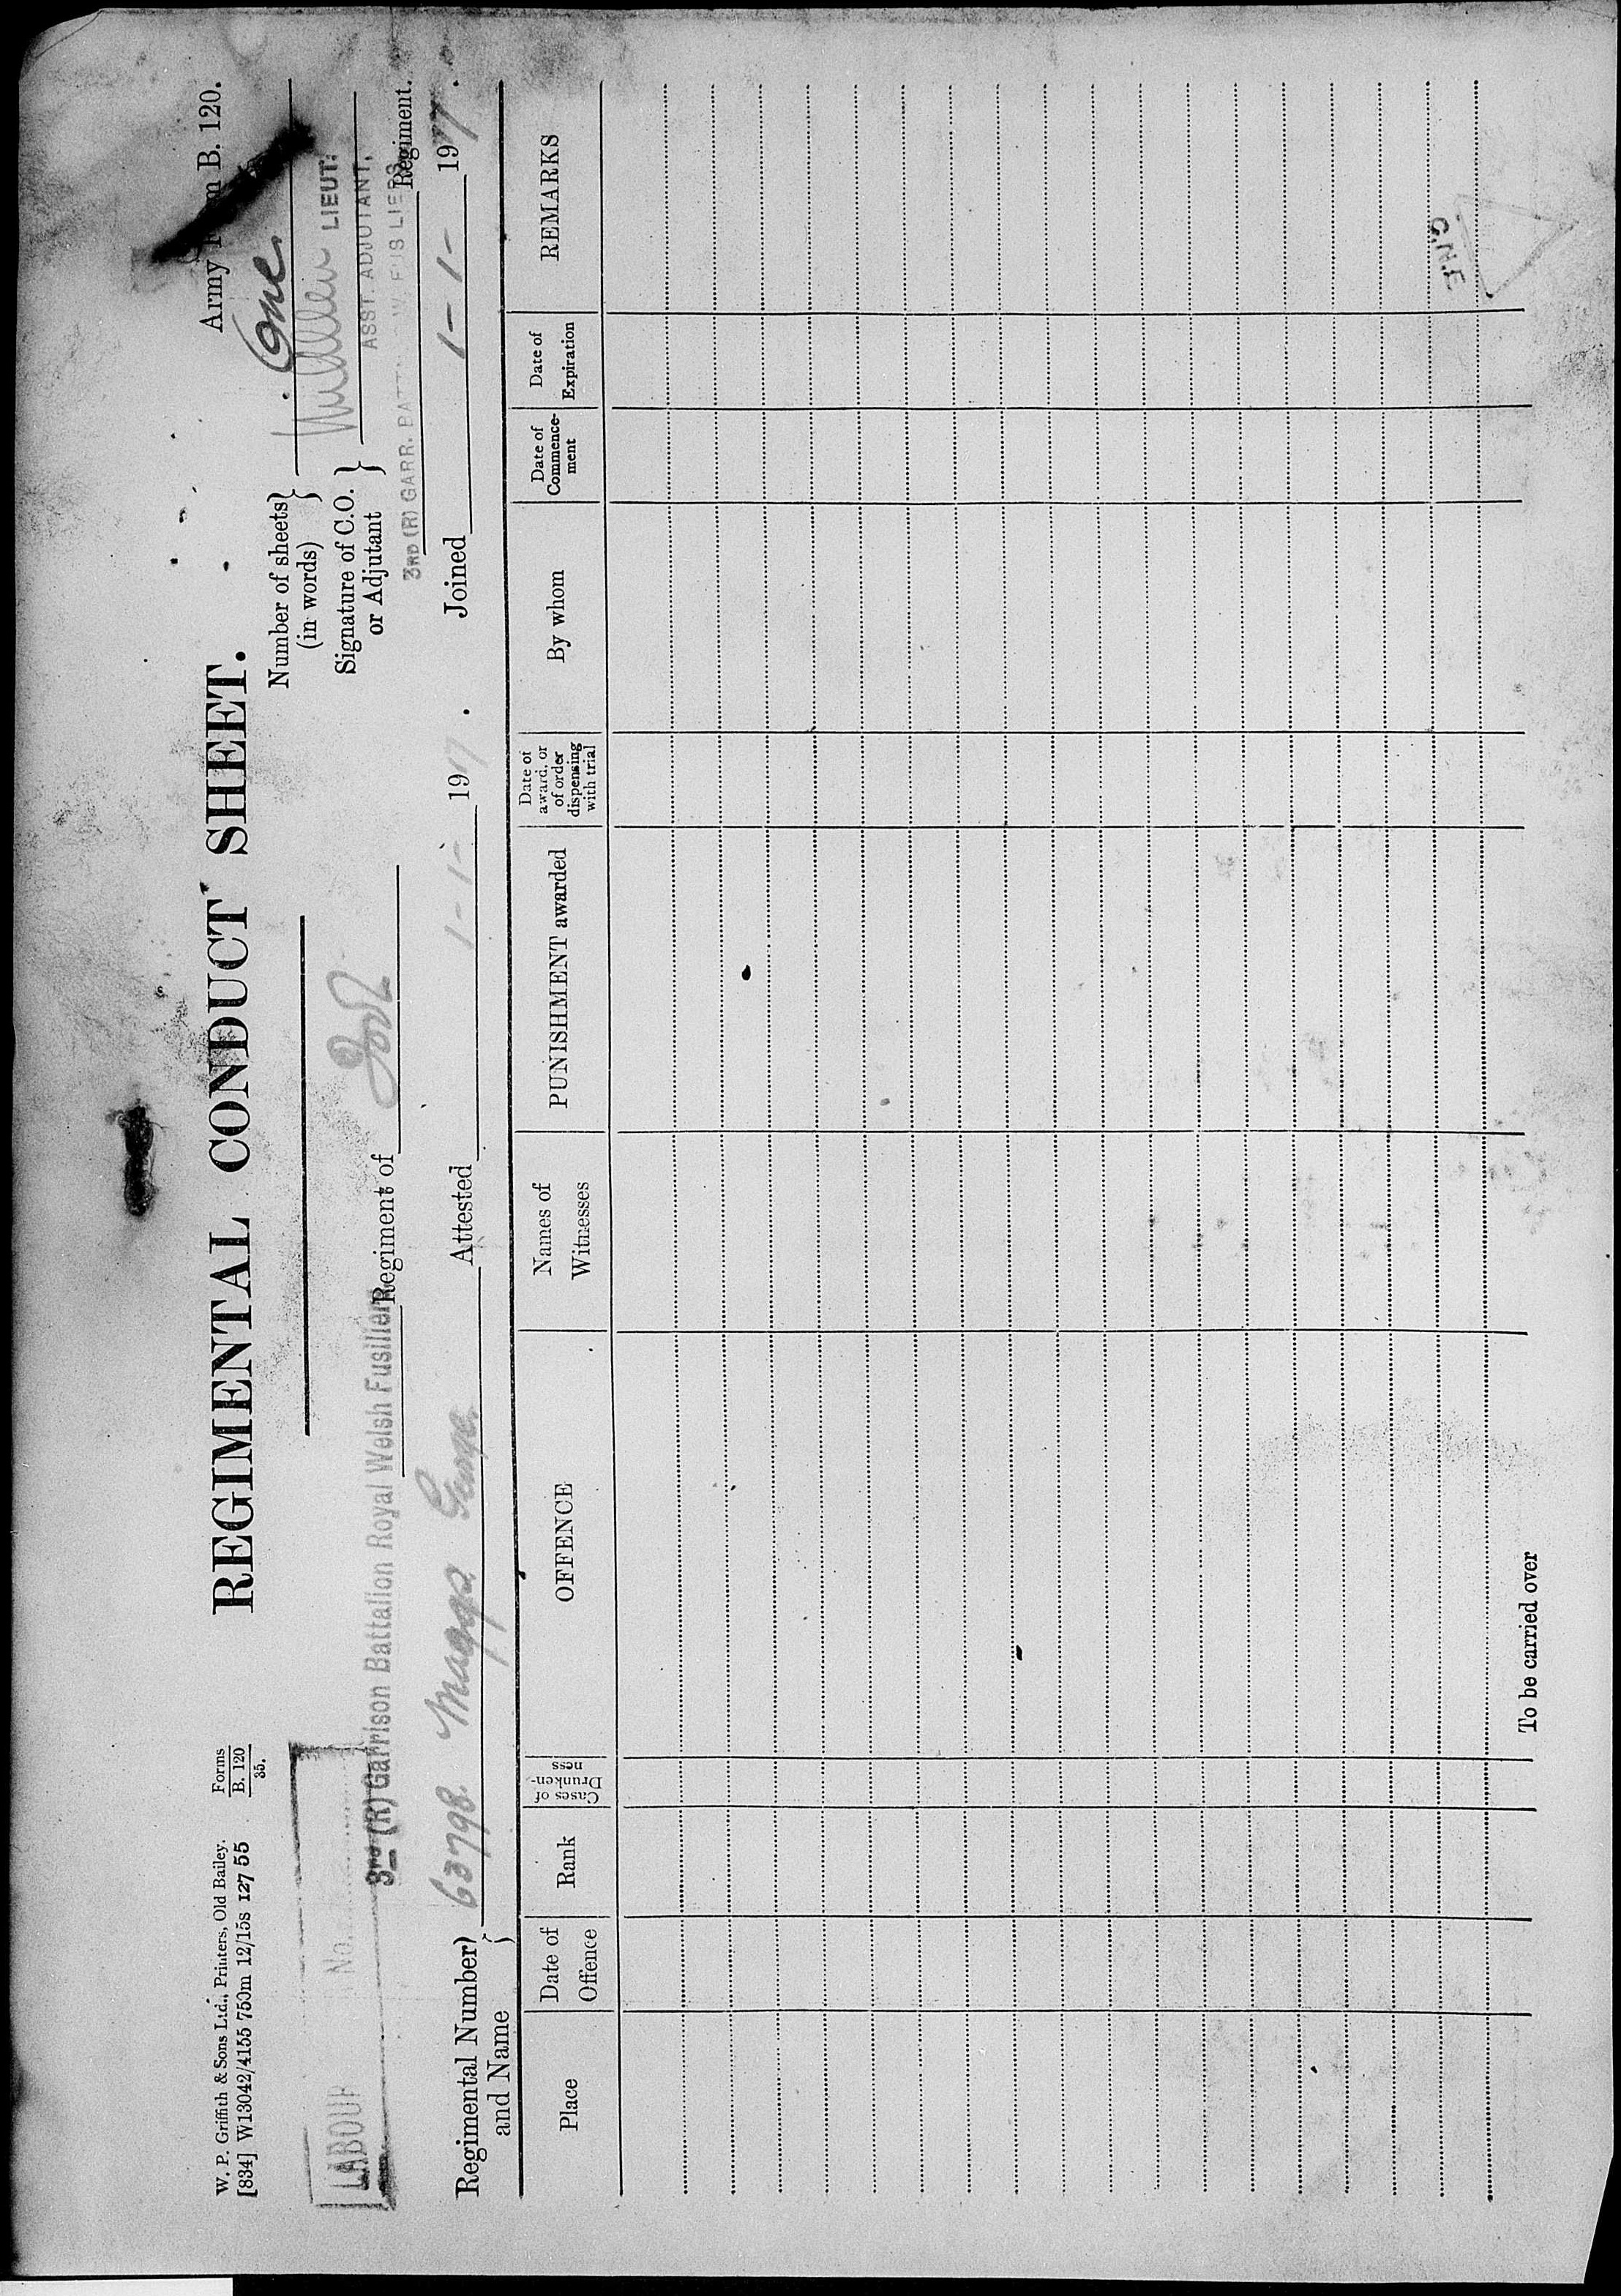 W. P. Griffith & Sons Ltd., Printers, Old Bailey.
[834] W13042/4155 750m 12/15s 12755
Forms
B. 120
35.
Army B. 120.
REGIMENTAL CONDUCT SHEET.
Number of sheets
(in words)
One
LABOUR No.
Signature of C.O.
or Adjutant
LIEUT:
ASST. ADJUTANT,
3rd (R) Garrison Battalion Royal Welsh Fusiliers Regiment of Foot
3RD (R) GARR. BATTN. W. FUSLIERS Regiment.
Regimental Number
and Name
63798. Maggs George. Attested 1-1-1917. Joined 1-1-1917.
Place
Date of
Offence
Rank
Cases of
Drunken-
ness
OFFENCE
Names of
Witnesses
PUNISHMENT awarded
Date of
award, or
of order
dispensing
with trial
By whom
Date of
Commence-
ment
Date of
Expiration
REMARKS
To be carried over